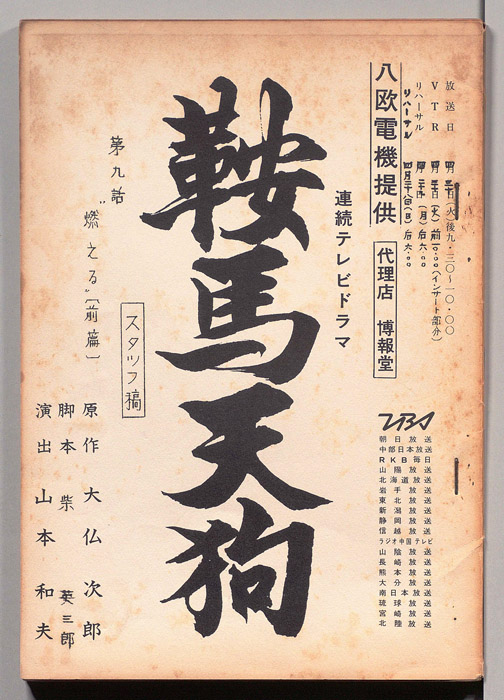 放送日 (火)後九・三〇〜一〇・〇〇
VTR (火)前一〇:〇〇(インサート部分)
リハーサル (月)后六:〇〇
リハーサル 四月二十八日(日)后六:〇〇
八欧電機提供
代理店 博報堂
TBS
朝日放送
中部日本放送
RKB毎日
山陽放送
北海道放送
岩手放送
東北放送
新潟放送
静岡放送
信越放送
ラジオ中国テレビ
山陰放送
長崎放送
熊本放送
大分放送
南日本放送
琉球放送
宮崎放送
北陸放送
連続テレビドラマ
鞍馬天狗
第九話
"燃える"〔前篇〕
スタッフ稿
原作 大仏次郎
脚本 柴英三郎
演出 山本和夫